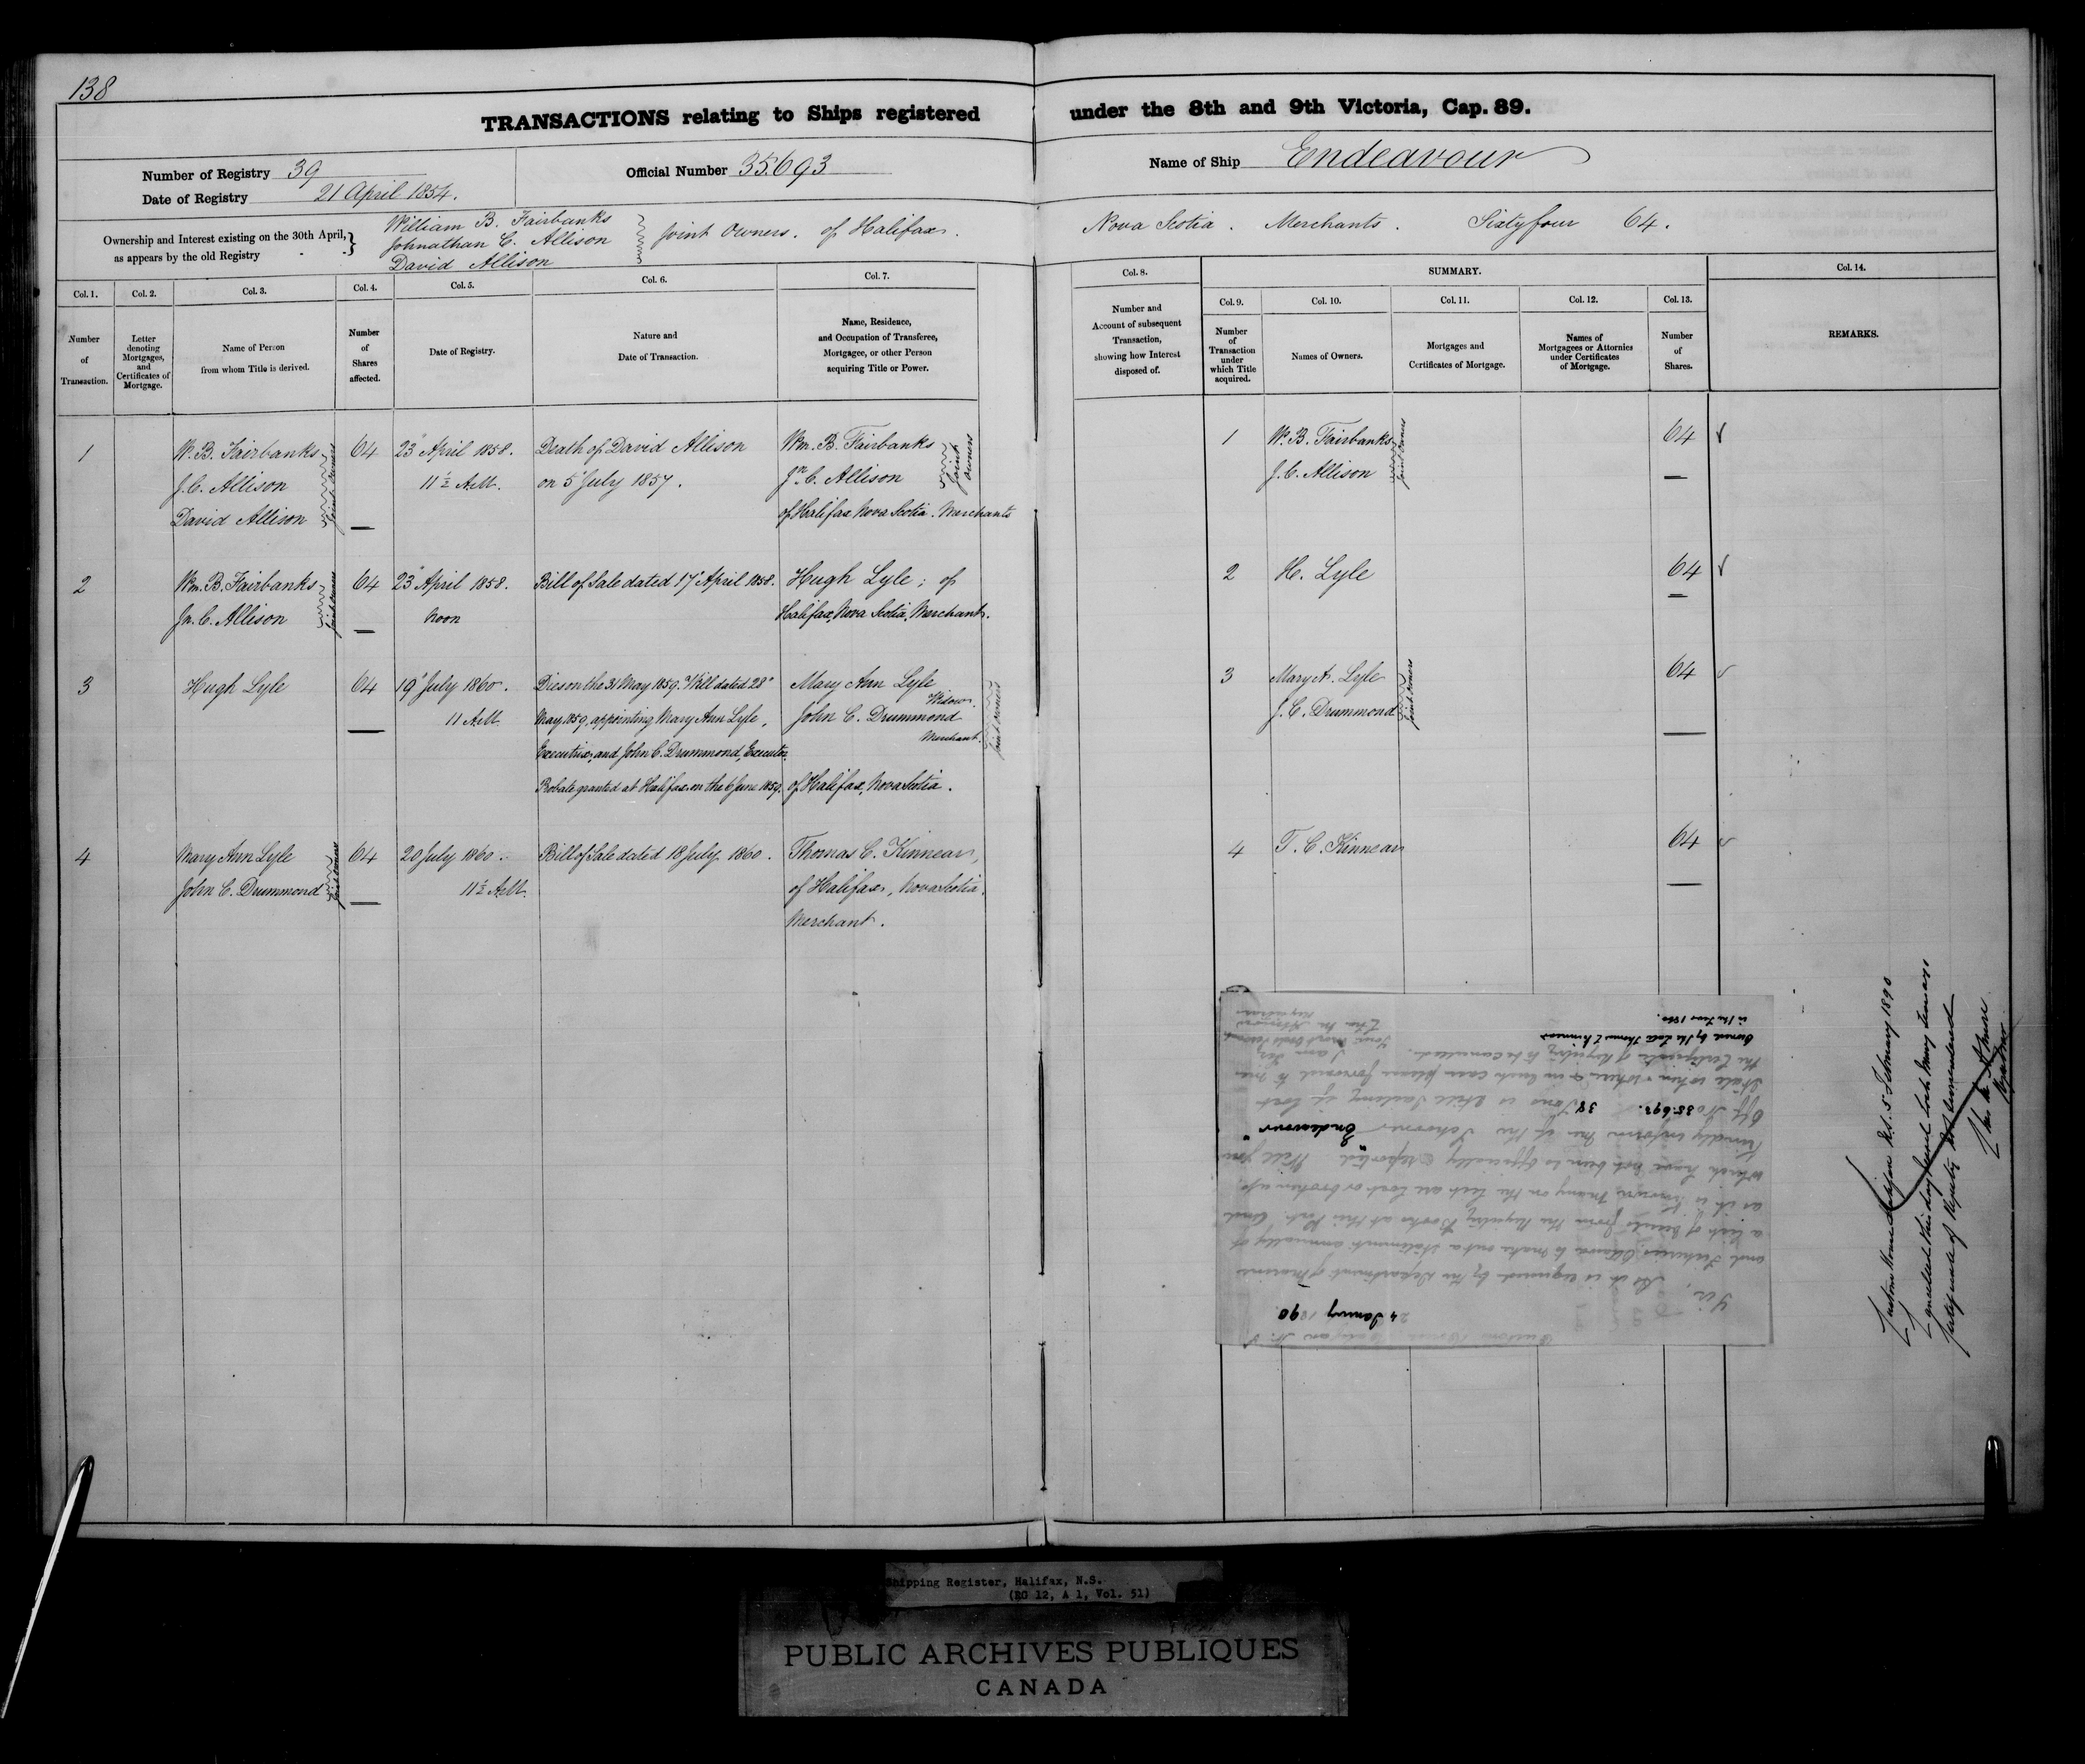 138
TRANSACTIONS relating to Ships registered under the 8th and 9th Victoria, Cap. 89.
Number of Registry 39
Date of Registry 21 April 1854.
Official Number 35.693
Name of Ship Endeavour
Ownership and Interest existing on the 30th April, as appears by the old Registry
William B. Fairbanks
Johnathan C. Allison
David Allison
Joint Owners. of Halifax. Nova Scotia. Merchants. Sixty four 64.
Col. 1.
Number of Transaction.
Col. 2.
Letter denoting Mortgages, and Certificates of Mortgage.
Col. 3.
Name of Person from whom Title is derived.
Col. 4.
Number of Shares affected.
Col. 5.
Date of Registry.
Col. 6.
Nature and Date of Transaction.
Col. 7.
Name, Residence, and Occupation of Transferee, Mortgagee, or other Person acquiring Title or Power.
Col. 8.
Number and Account of subsequent Transaction, showing how Interest disposed of.
SUMMARY.
Col. 9.
Number of Transaction under which Title acquired.
Col. 10.
Names of Owners.
Col. 11.
Mortgages and Certificates of Mortgage.
Col. 12.
Names of Mortgagees or Attornies under Certificates of Mortgage.
Col. 13.
Number of Shares.
Col. 14.
REMARKS.
1
W. B. Fairbanks
J. C. Allison
David Allison
Joint Owners
64
23 April 1858.
11½ A.M.
Death of David Allison
on 5 July 1857.
Wm. B. Fairbanks
Jn. C. Allison
Joint Owners
of Halifax Nova Scotia. Merchants
1
W. B. Fairbanks
J. C. Allison
Joint Owners
64
2
Wm. B. Fairbanks
Jn. C. Allison
Joint Owners
64
23 April 1858.
Noon
Bill of Sale dated 17 April 1858.
Hugh Lyle; of
Halifax, Nova Scotia, Merchant.
2
H. Lyle
64
3
Hugh Lyle
64
19 July 1860.
11 A.M.
Dies on the 31 May 1859. Will dated 28
May 1859, appointing Mary Ann Lyle,
Executrix, and John C. Drummond, Executor.
Probate granted at Halifax on the 6 June 1859.
Mary Ann Lyle
Widow.
John C. Drummond
Merchant.
Joint Owners
of Halifax, Nova Scotia.
3
Mary A. Lyle
J. C. Drummond
Joint Owners
64
4
Mary Ann Lyle
John C. Drummond
Joint Owners
64
20 July 1860.
11½ A.M.
Bill of Sale dated 18 July 1860.
Thomas C. Kinnear,
of Halifax, Nova Scotia,
Merchant.
4
T. C. Kinnear
64
Custom House Halifax N.S. 5 February 1890
Cancelled this day Vessel lost many years
Certificate of Registry not surrendered
Registrar
Custom House Halifax N.S
24 January 1890
Sir,
As it is required by the Department of Marine
and Fisheries Ottawa to make out a statement annually of
a list of vessels from the Registry Books at this Port. And
as it is known many on the list are lost or broken up
which have not been so officially reported. Will you
kindly inform me if the Schooner "Endeavour"
Off No 35.693. 38 Tons is still sailing if lost
State when & where & in such case please forward to me
the Certificate of Registry to be cancelled.
I am Sir
Your most obdt Servant
Registrar
Owned by the late Thomas C Kinnear
in the Year 1860.
Shipping Register, Halifax, N.S.
(RG 12, A 1, Vol. 51)
PUBLIC ARCHIVES PUBLIQUES
CANADA